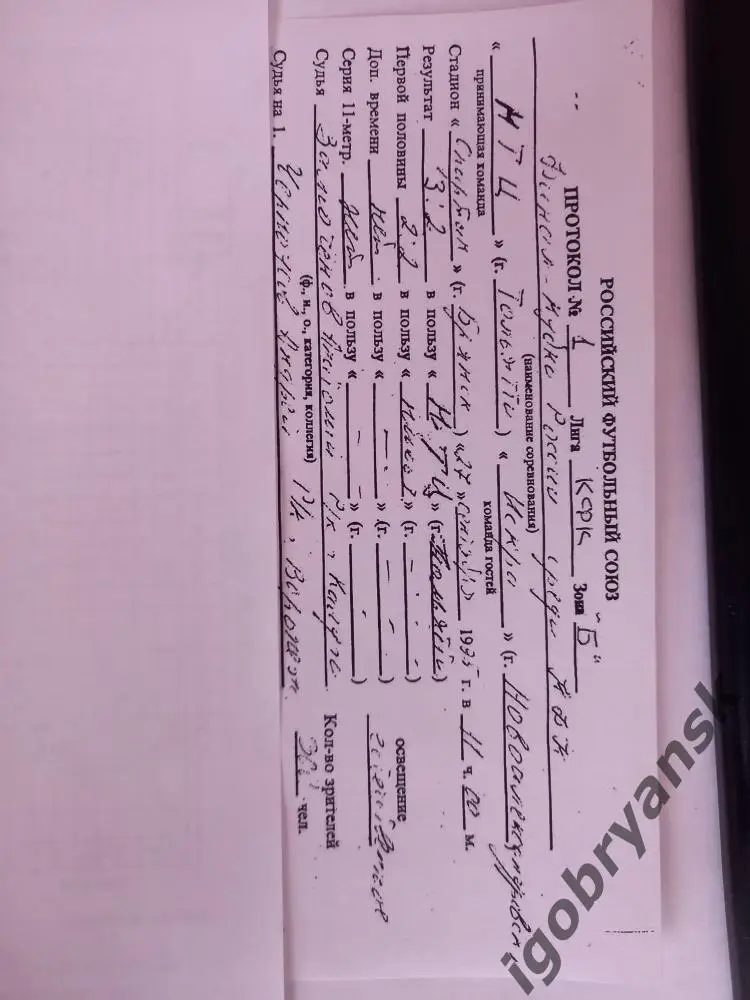 РОССИЙСКИЙ ФУТБОЛЬНЫЙ СОЮЗ
ПРОТОКОЛ № 1 Лига КФК Зона "Б"
Финал Кубка России среди КФК
(наименование соревнования)
« МТЦ » (г. Тольятти) « Искра » (г. Новоалександровск
принимающая команда команда гостей
Стадион « Спартак » (г. Брянск) «27» 1995 г. в 11 ч. 00 м.
Результат 3:2 в пользу « МТЦ » (г. Тольятти)
Первой половины 2:2 в пользу « » (г. - )
освещение
Доп. времени нет в пользу « - » (г. - )
естественное
Серия 11-метр. нет в пользу « - - » (г. )
Судья РК, Калуга
Кол-во зрителей
(ф., и., о., категория, коллегия)
чел.
Судья на 1. Андрей РК, Воронеж
igobryansk